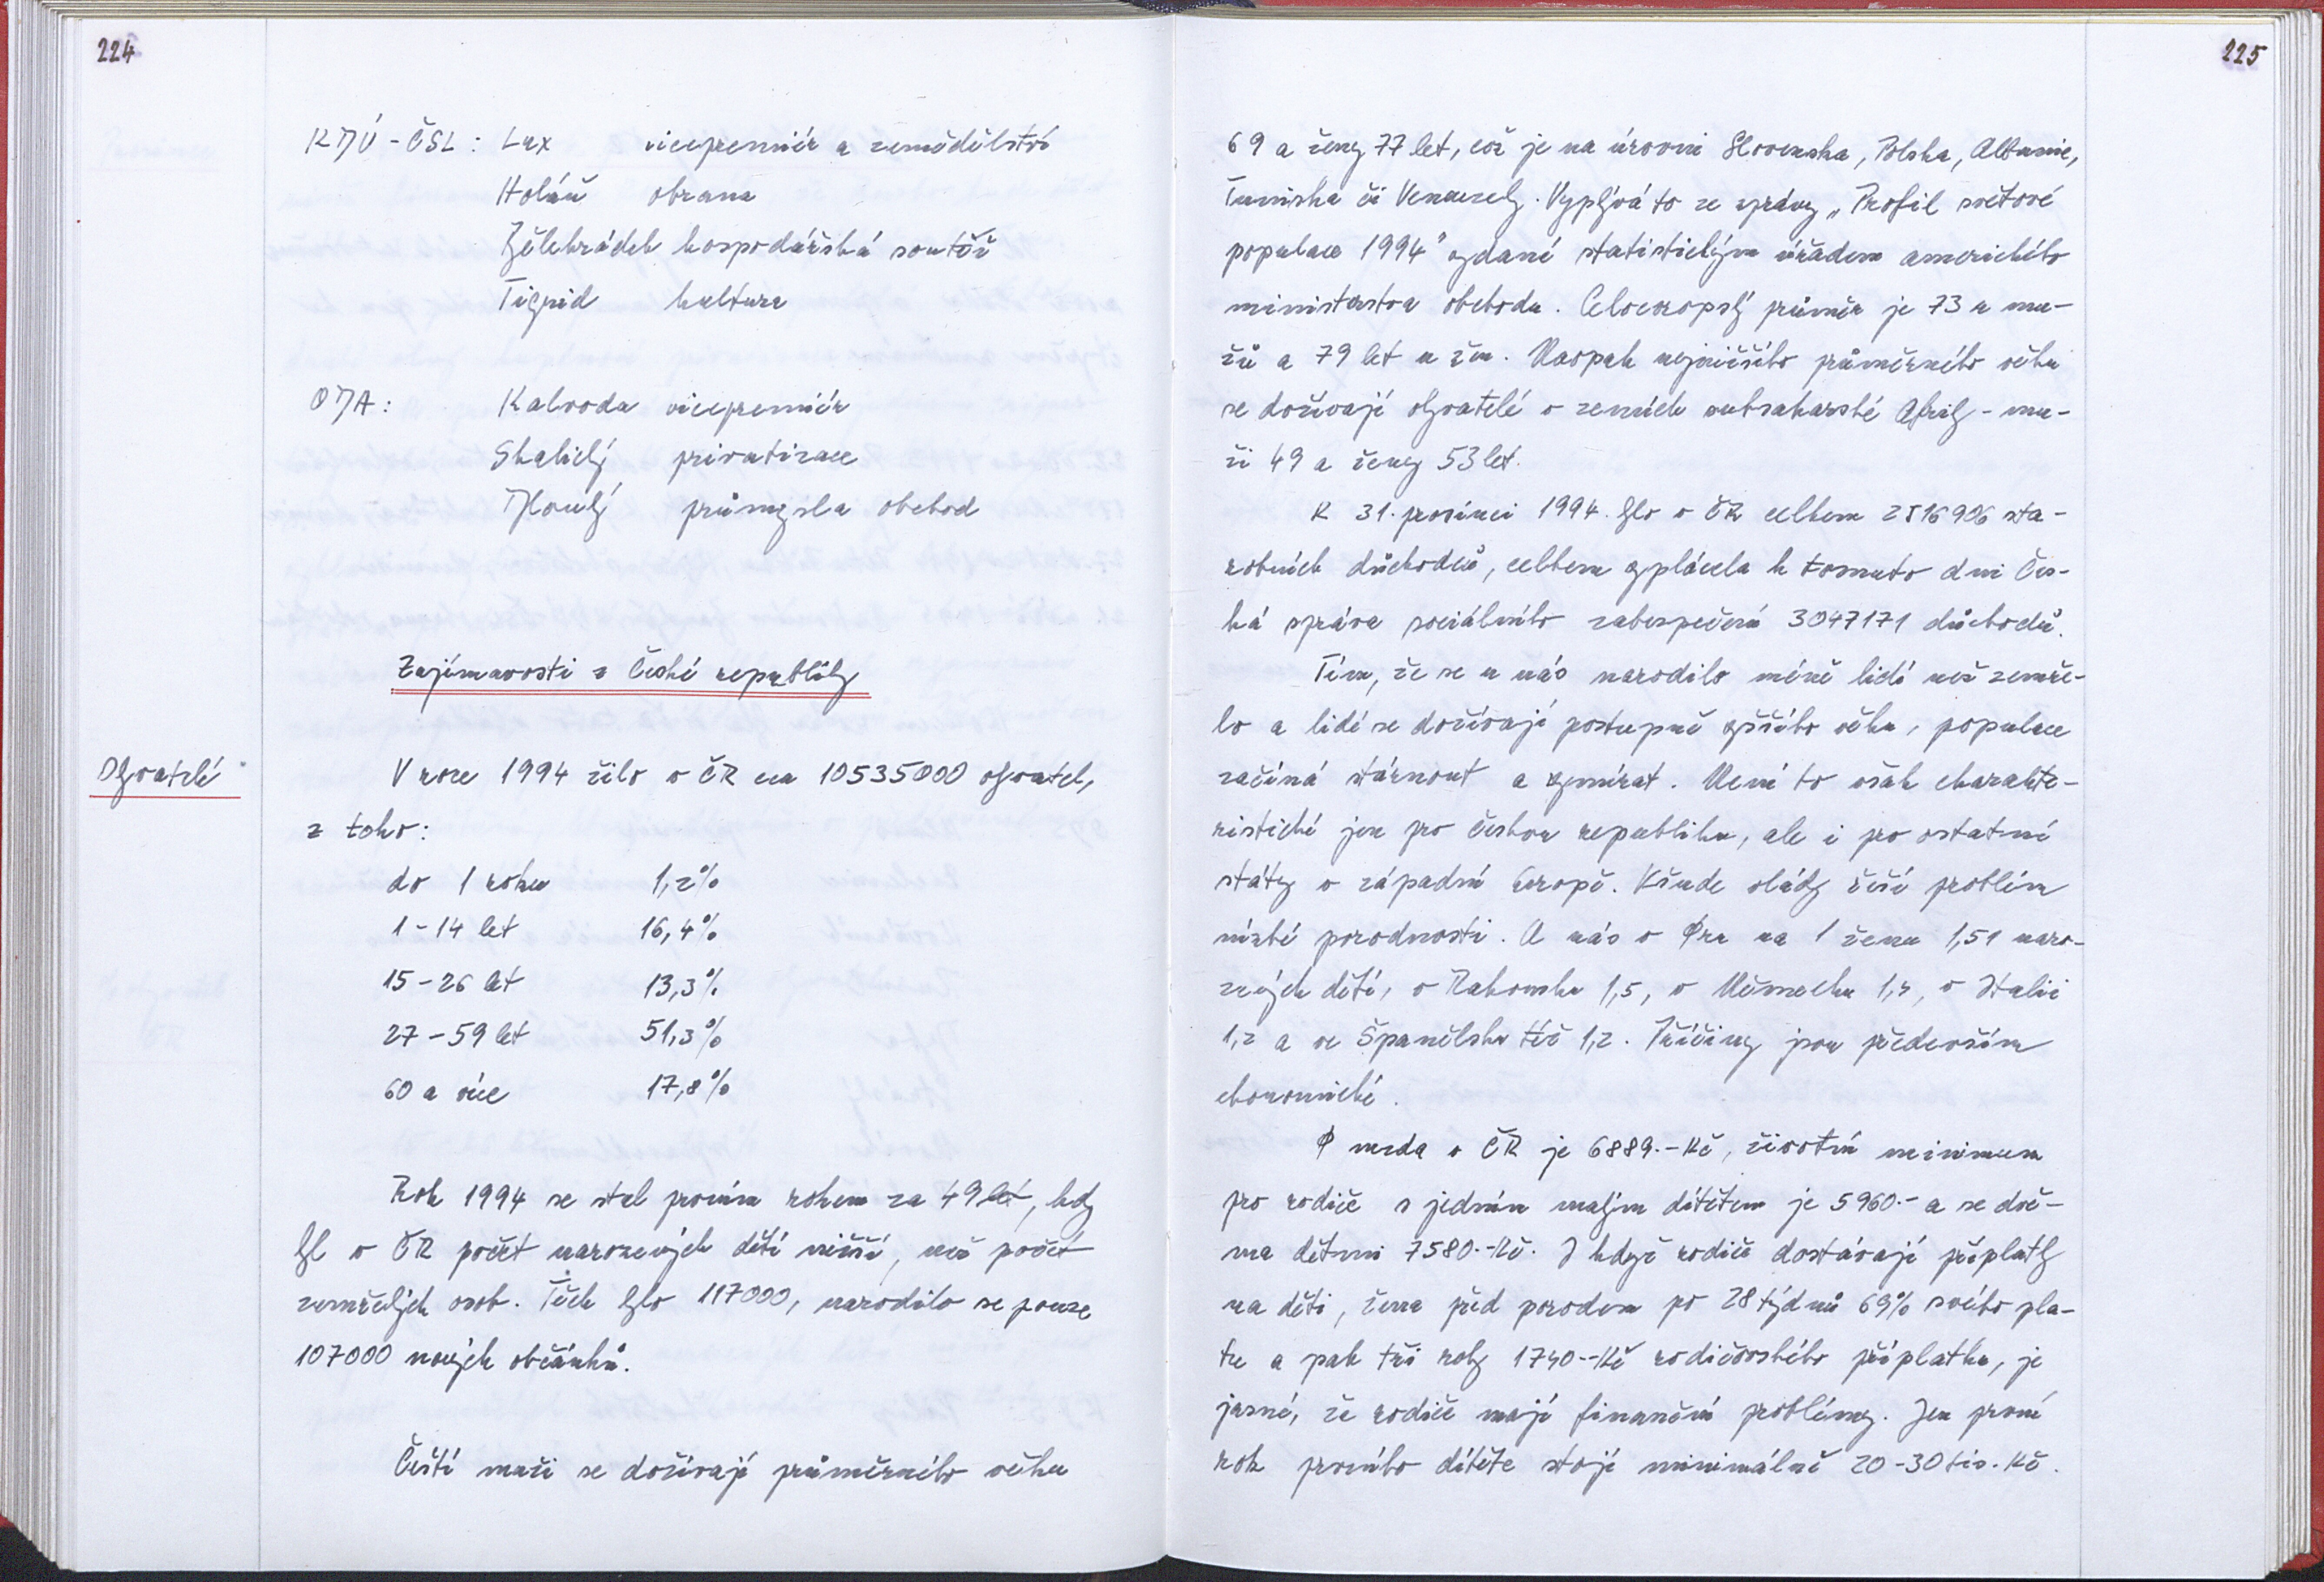 224
KDÚ-ČSL: Lux vicepremiér a zemědělství
Holáň obrana
Bělehrádek hospodářská soutěž
Tigrid kultura
ODA: Kalvoda vicepremiér
Skalický privatizace
Dlouhý průmysl a obchod
Zajímavosti z České republiky
Obyvatelé
V roce 1994 žilo v ČR cca 10535000 obyvatel,
z toho:
do 1 roku 1,2%
1-14 let 16,4%
15-26 let 13,3%
27-59 let 51,3%
60 a více 17,8%
Rok 1994 se stal prvním rokem za 49 let, kdy
byl v ČR počet narozených dětí nižší, než počet
zemřelých osob. Těch bylo 117000, narodilo se pouze
107000 nových občánků.
Čeští muži se dožívají průměrného věku
225
69 a ženy 77 let, což je na úrovni Slovenska, Polska, Albanie,
Tuniska či Venezuely. Vyplývá to ze zprávy „Profil světové
populace 1994" vydané statistickým úřadem amerického
ministerstva obchodu. Celoevropský průměr je 73 u mu-
žů a 79 let u žen. Naopak nejnižšího průměrného věku
se dožívají obyvatelé v zemích subsaharské Afriky - mu-
ži 49 a ženy 53 let.
K 31. prosinci 1994 bylo v ČR celkem 2516906 sta-
robních důchodců, celkem vyplácela k tomuto dni Čes-
ká správa sociálního zabezpečení 3047171 důchodů.
Tím, že se u nás narodilo méně lidí než zemře-
lo a lidé se dožívají postupně vyššího věku, populace
začíná stárnout a vymírat. Není to však charakte-
ristické jen pro Českou republiku, ale i pro ostatní
státy v západní Evropě. Všude vlády řeší problém
nízké porodnosti. U nás v Ø na 1 ženu 1,51 naro-
zených dětí, v Rakousku 1,5, v Německu 1,4, v Italii
1,2 a ve Španělsku též 1,2. Příčiny jsou především
ekonomické.
Ø mzda v ČR je 6889.-Kč, životní minimum
pro rodiče s jedním malým dítětem je 5960.- a se dvě-
ma dětmi 7580.-Kč. I když rodiče dostávají příplatky
na děti, žena před porodem po 28 týdnů 69% svého pla-
tu a pak tři roky 1740.-Kč rodičovského příplatku, je
jasné, že rodiče mají finanční problémy. Jen první
rok prvního dítěte stojí minimálně 20-30 tis. Kč.